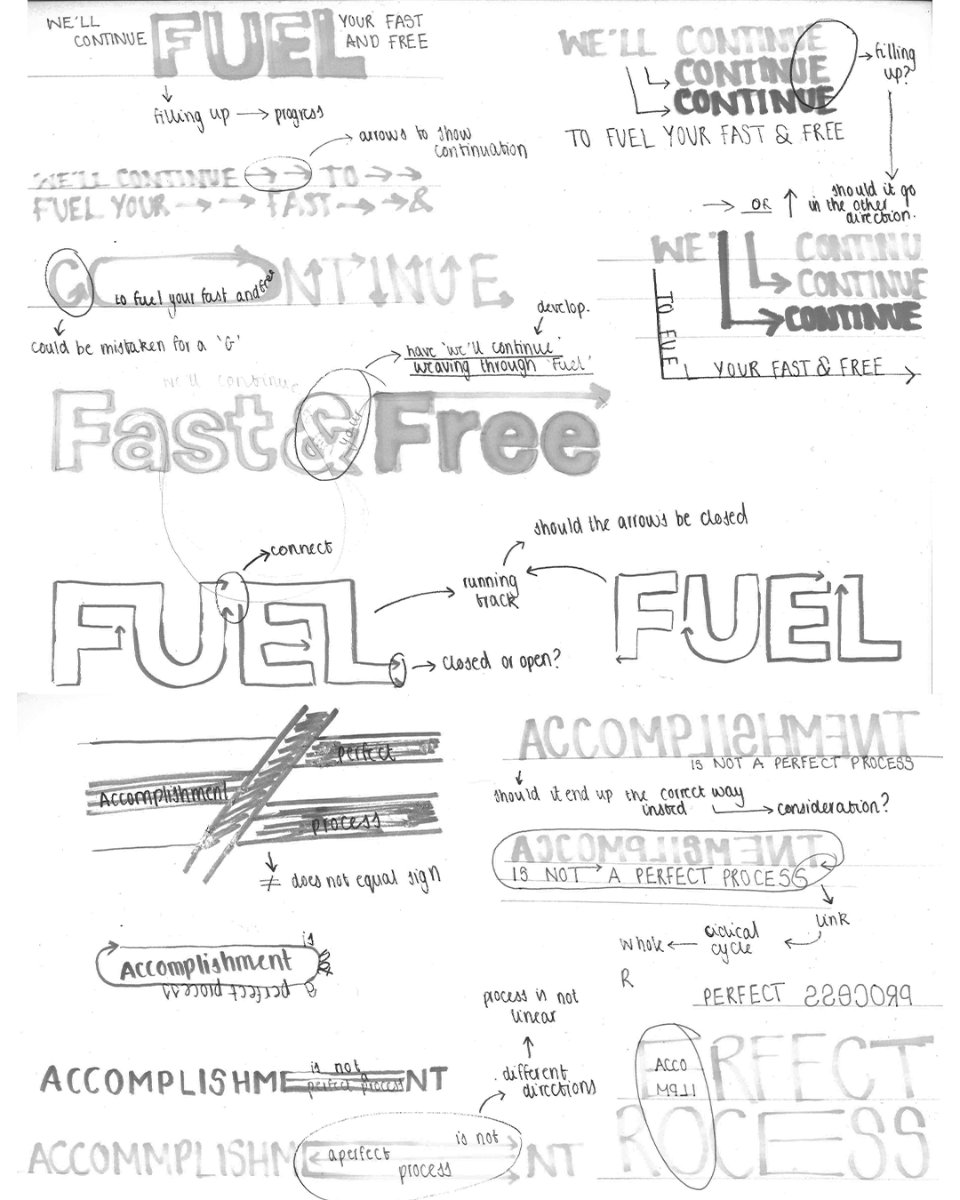 WE'LL
CONTINUE
FUEL
YOUR FAST
AND FREE
filling up → progress
WE'LL CONTINUE
CONTINUE
CONTINUE
→ filling
up?
TO FUEL YOUR FAST & FREE
arrows to show
continuation
WE'LL CONTINUE → → TO → →
FUEL YOUR → → FAST → → &
→ OR ↑
should it go
in the other
direction.
C
to fuel your fast and free
NTINUE
could be mistaken for a 'G'
WE'LL
CONTINU
CONTINUE
CONTINUE
TO FUE
L YOUR FAST & FREE
develop.
have 'we'll continue'
weaving through 'Fuel'
we'll continue
Fast & Free
your
should the arrows be closed
connect
running
track
FUEL
FUEL
closed or open?
perfect
Accomplishment
process
≠ does not equal sign
ACCOMPLISHMENT
IS NOT A PERFECT PROCESS
should it end up the correct way
insted → consideration?
ACCOMPLISHMENT
IS NOT → A PERFECT PROCESS
link
ciclical
cycle
whole
is
Accomplishment
a perfect process
R
PERFECT PROCESS
process is not
linear
different
directions
ACCOMPLISHME
is not
perfect process
NT
ERFECT
ACCO
MPLL
ROCESS
ACCOMMPLISHM
is not
aperfect
process
NT